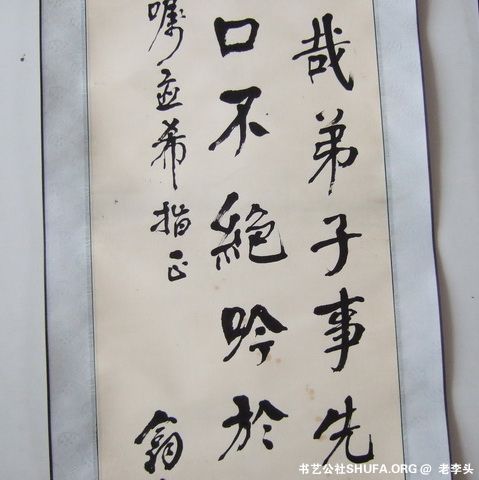 哉弟子事先
口不絕吟於
嘱並希指正
翁
书艺公社SHUFA.ORG @ 老李头